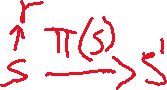 r
S π(s) S'